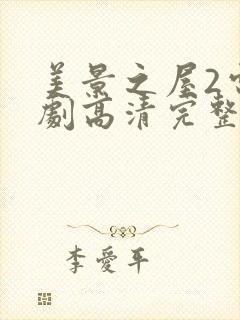 美景之屋2电
劇高清完整
李愛平